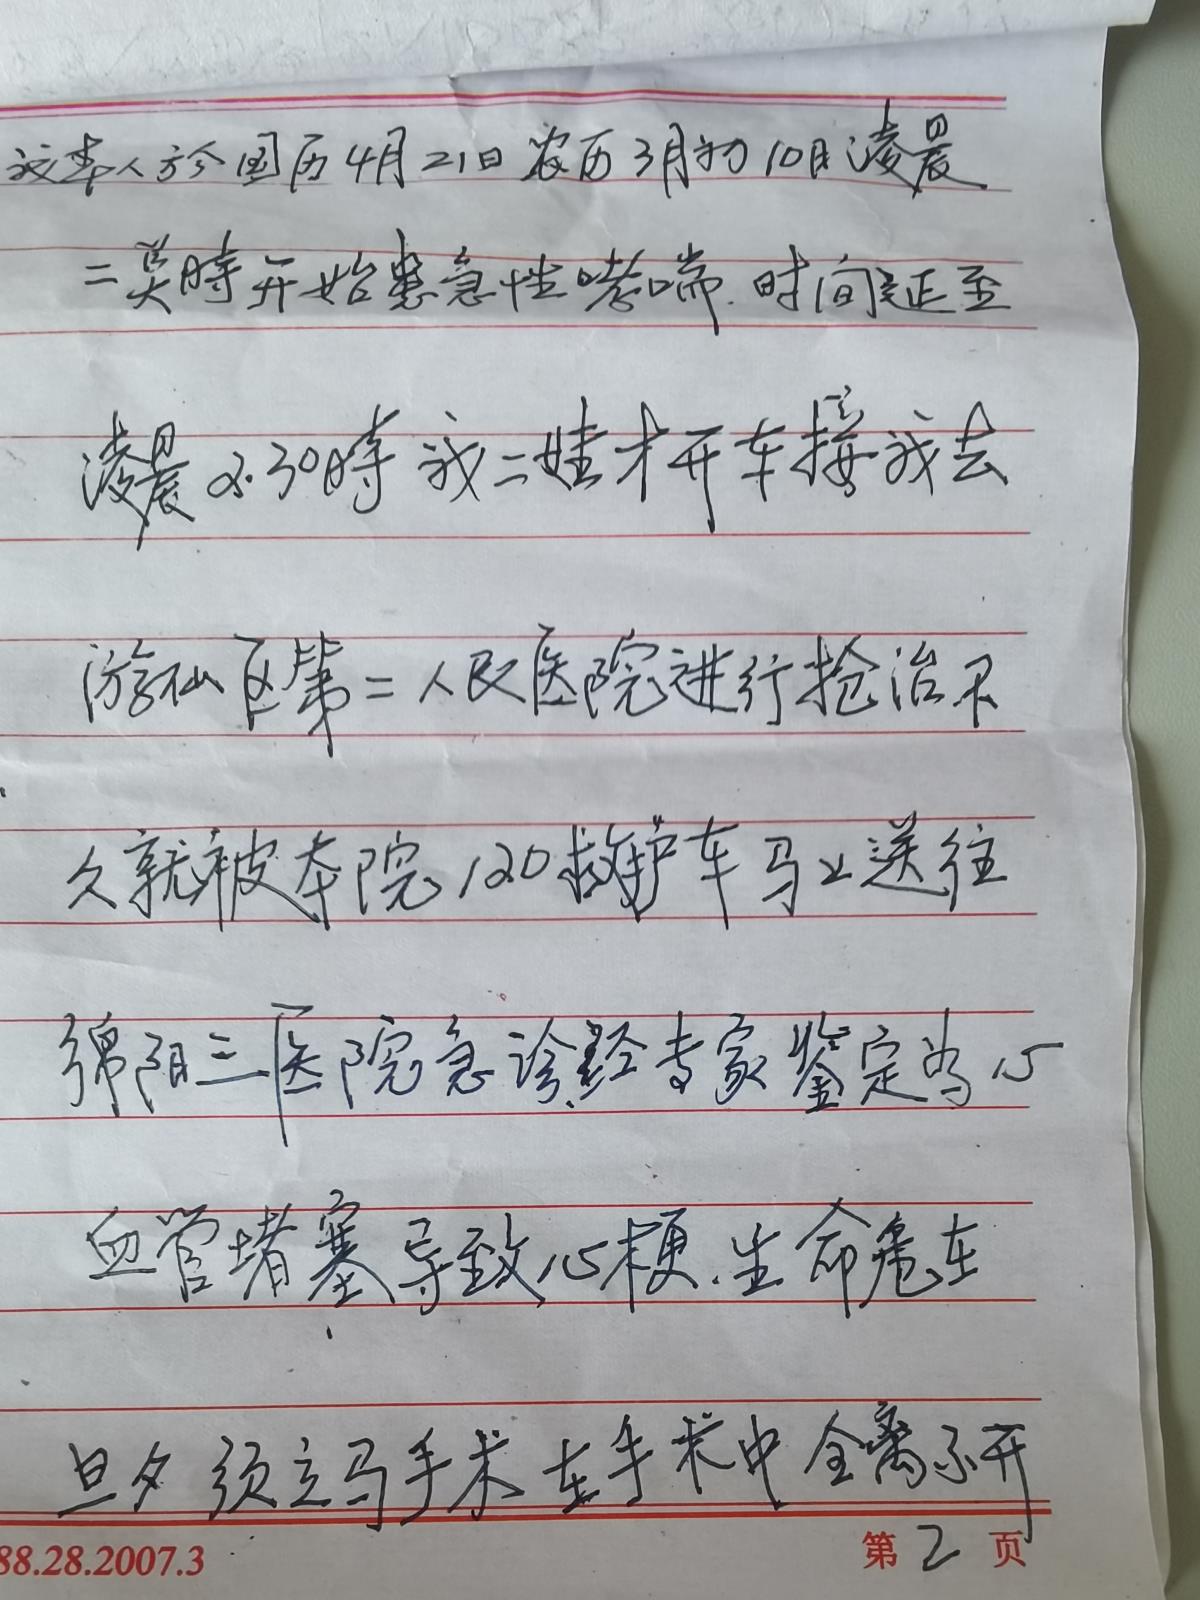 我本人於今国历4月21日农历3月初10日凌晨
二点時开始患急性哮喘.时间延至
凌晨2.30時我二娃才开车接我去
游仙区第二人民医院进行抢治不
久就被本院120救护车马上送往
绵阳三医院急诊.经专家鉴定为心
血管堵塞导致心梗.生命危在
旦夕须立马手术在手术中全离不开
88.28.2007.3
第2页